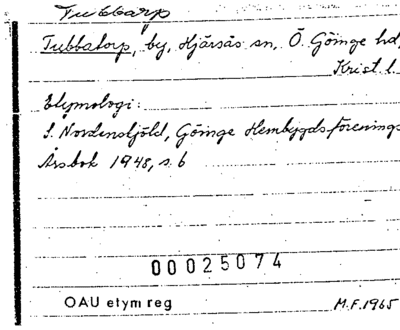 Tubbarp
Tubbatorp, by, Hjärsås sn, Ö. Göinge hd,
Krist. l.
Etymologi:
S. Nordenskjöld, Göinge Hembygdsförenings
Årsbok 1948, s. 6
00025074
OAU etym reg M.F. 1965